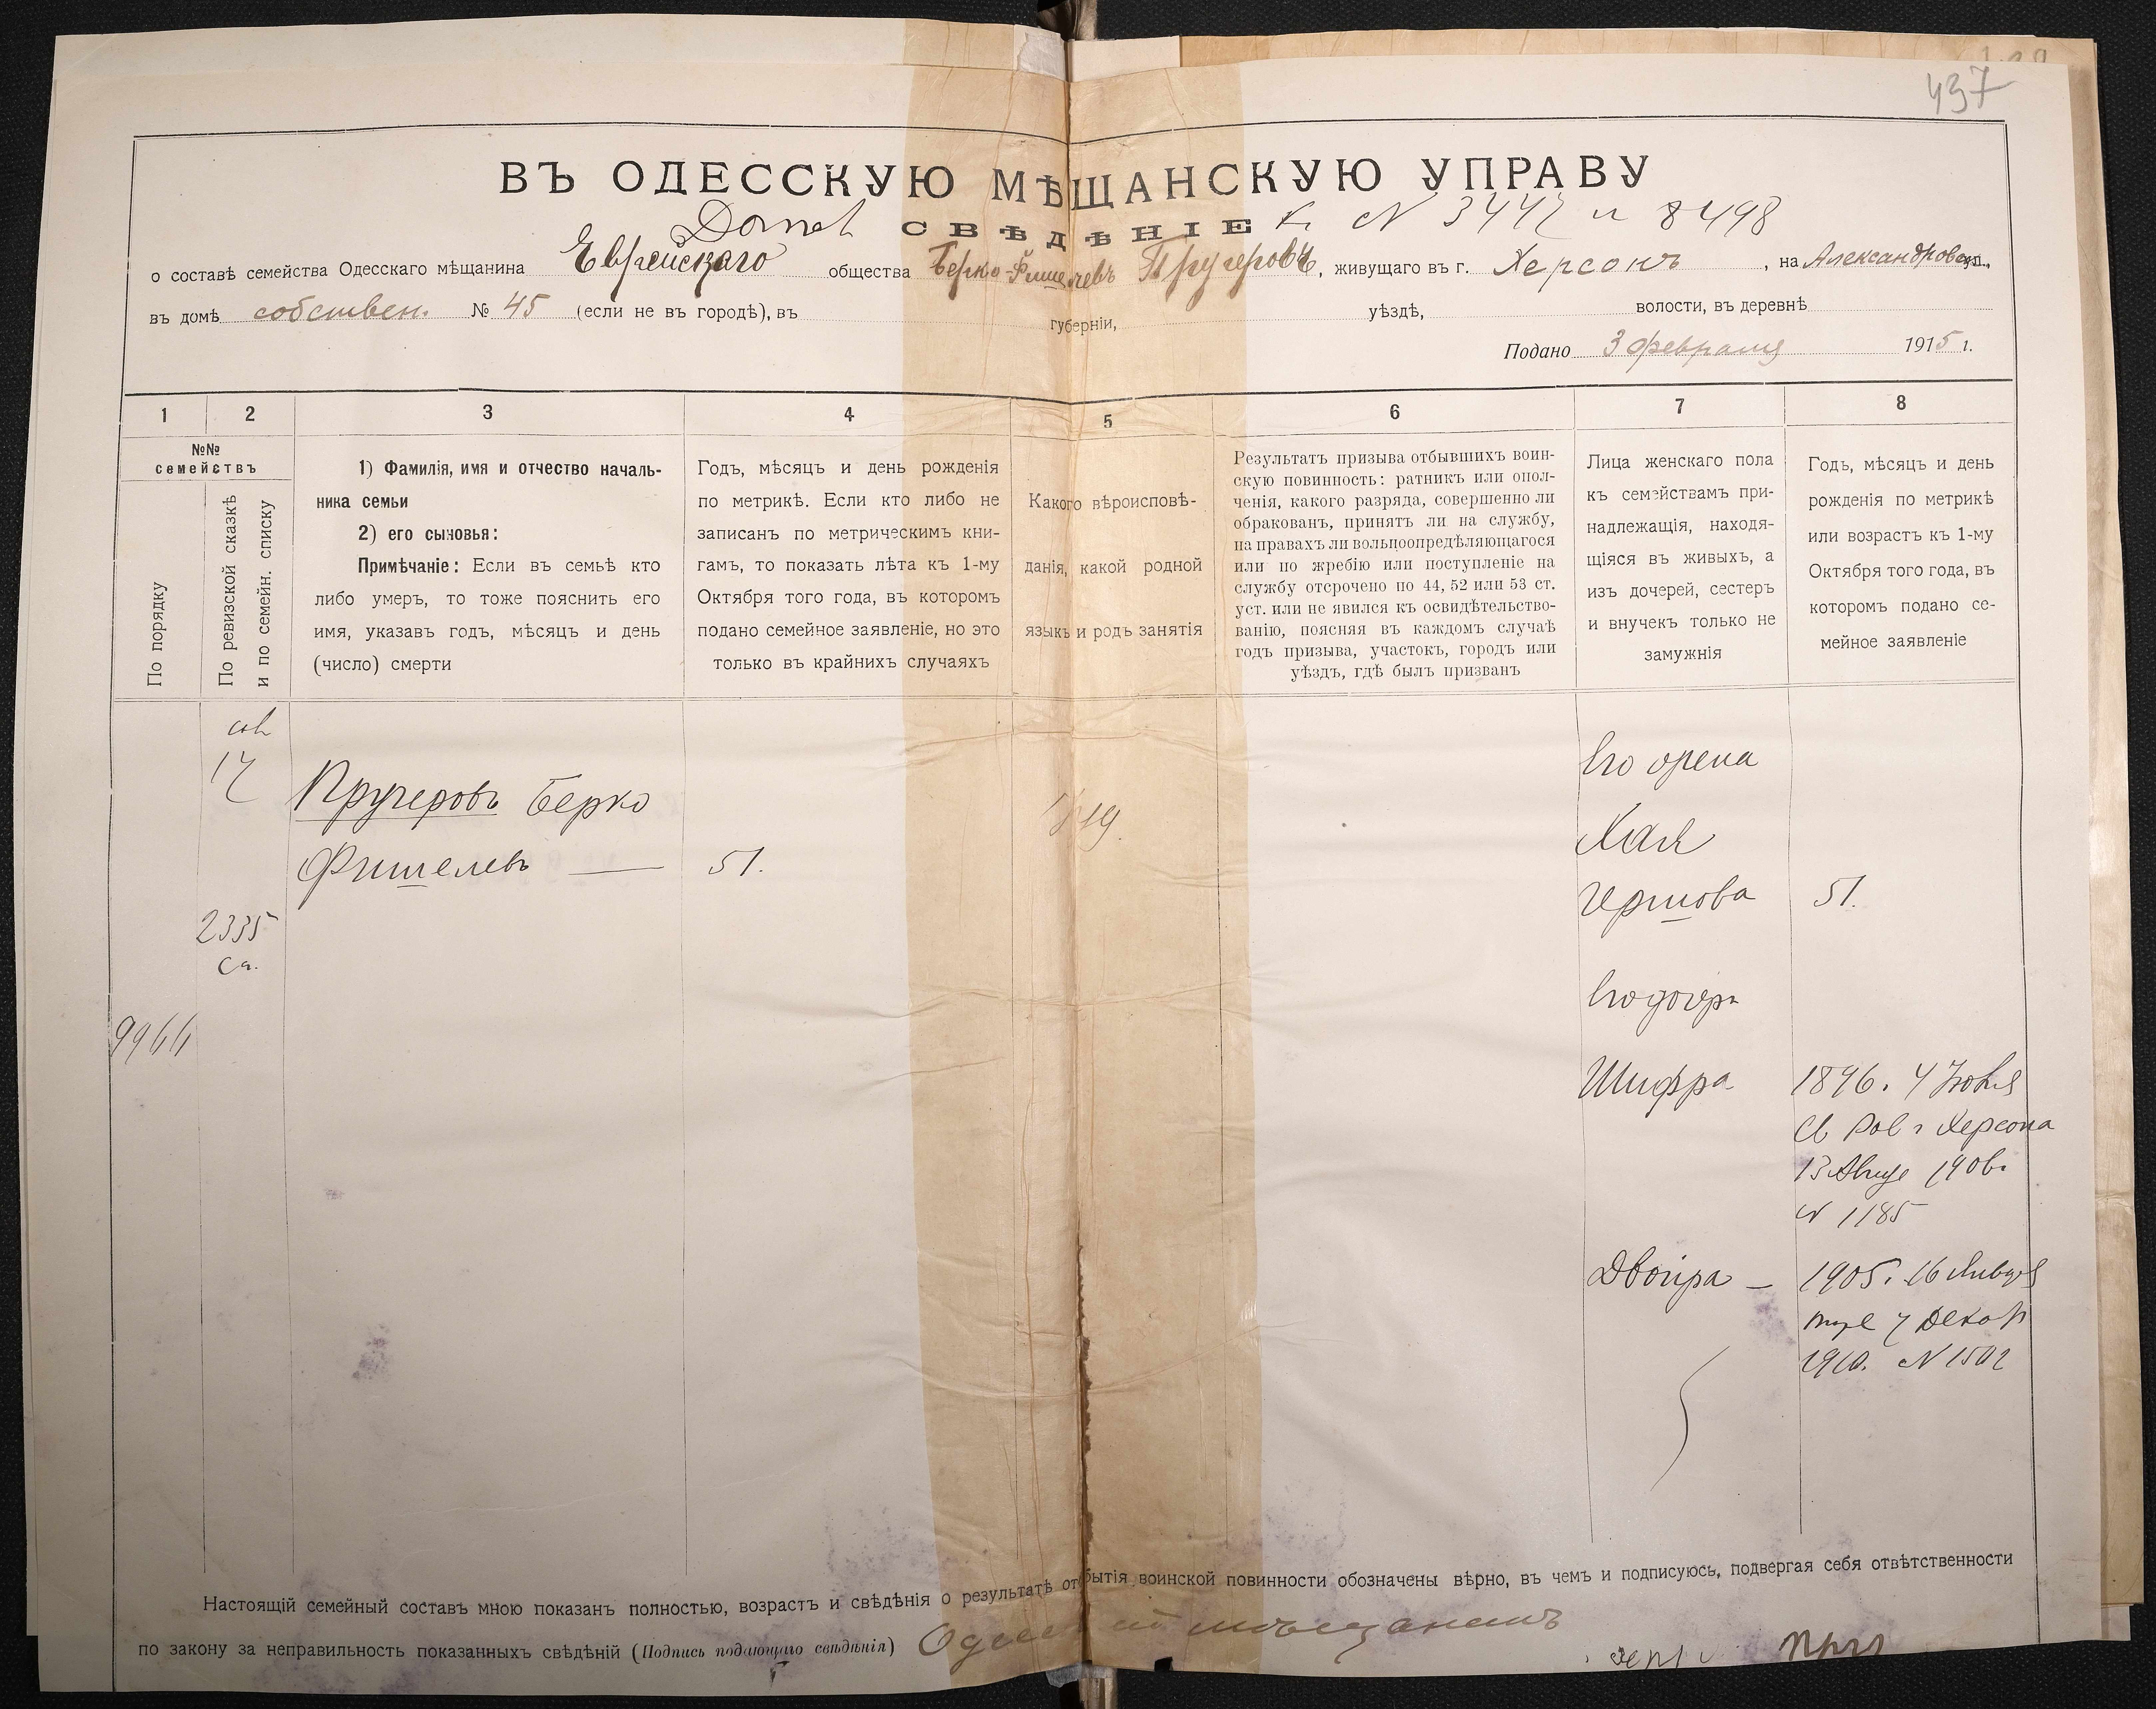 437
ВЪ ОДЕССКУЮ МѢЩАНСКУЮ УПРАВУ
СВѢДѢНІЕ к N 3442 и 8498
о составѣ семейства Одесскаго мѣщанина Еврейскаго общества Берко-Фишелевъ Пругеровъ, живущаго въ г. Херсонъ, на Александровск. ул.,
въ домѣ собствен. № 45 (если не въ городѣ), въ губерніи, уѣздѣ, волости, въ деревнѣ
Подано 3 февраля 1915 г.
1 2 3 4 5 6 7 8
№№ семействъ
По порядку
По ревизской сказкѣ
и по семейн. списку
1) Фамилія, имя и отчество началь-
ника семьи
2) его сыновья:
Примѣчаніе: Если въ семьѣ кто
либо умеръ, то тоже пояснить его
имя, указавъ годъ, мѣсяцъ и день
(число) смерти
Годъ, мѣсяцъ и день рожденія
по метрикѣ. Если кто либо не
записанъ по метрическимъ кни-
гамъ, то показать лѣта къ 1-му
Октября того года, въ которомъ
подано семейное заявленіе, но это
только въ крайнихъ случаяхъ
Какого вѣроисповѣ-
данія, какой родной
языкъ и родъ занятія
Результатъ призыва отбывшихъ воин-
скую повинность: ратникъ или опол-
ченія, какого разряда, совершенно ли
обракованъ, принятъ ли на службу,
на правахъ ли вольноопредѣляющагося
или по жребію или поступленіе на
службу отсрочено по 44, 52 или 53 ст.
уст. или не явился къ освидѣтельство-
ванію, поясняя въ каждомъ случаѣ
годъ призыва, участокъ, городъ или
уѣздъ, гдѣ былъ призванъ
Лица женскаго пола
къ семействамъ при-
надлежащія, находя-
щіяся въ живыхъ, а
изъ дочерей, сестеръ
и внучекъ только не
замужнія
Годъ, мѣсяцъ и день
рожденія по метрикѣ
или возрастъ къ 1-му
Октября того года, въ
которомъ подано се-
мейное заявленіе
Пругеровъ Берко
Фишелевъ — 51.
2335
Его жена
Хая
Гершова 51.
Его дочери
Шифра 1896. 4 Іюля
Св Рав г Херсона
13 Авгус 1906.
N 1185
Двойра — 1905. 16 Января
1910. N 1502
Настоящій семейный составъ мною показанъ полностью, возрастъ и свѣдѣнія о результатѣ отбытія воинской повинности обозначены вѣрно, въ чемъ и подписуюсь, подвергая себя отвѣтственности
по закону за неправильность показанныхъ свѣдѣній (Подпись подающаго свѣдѣнія)